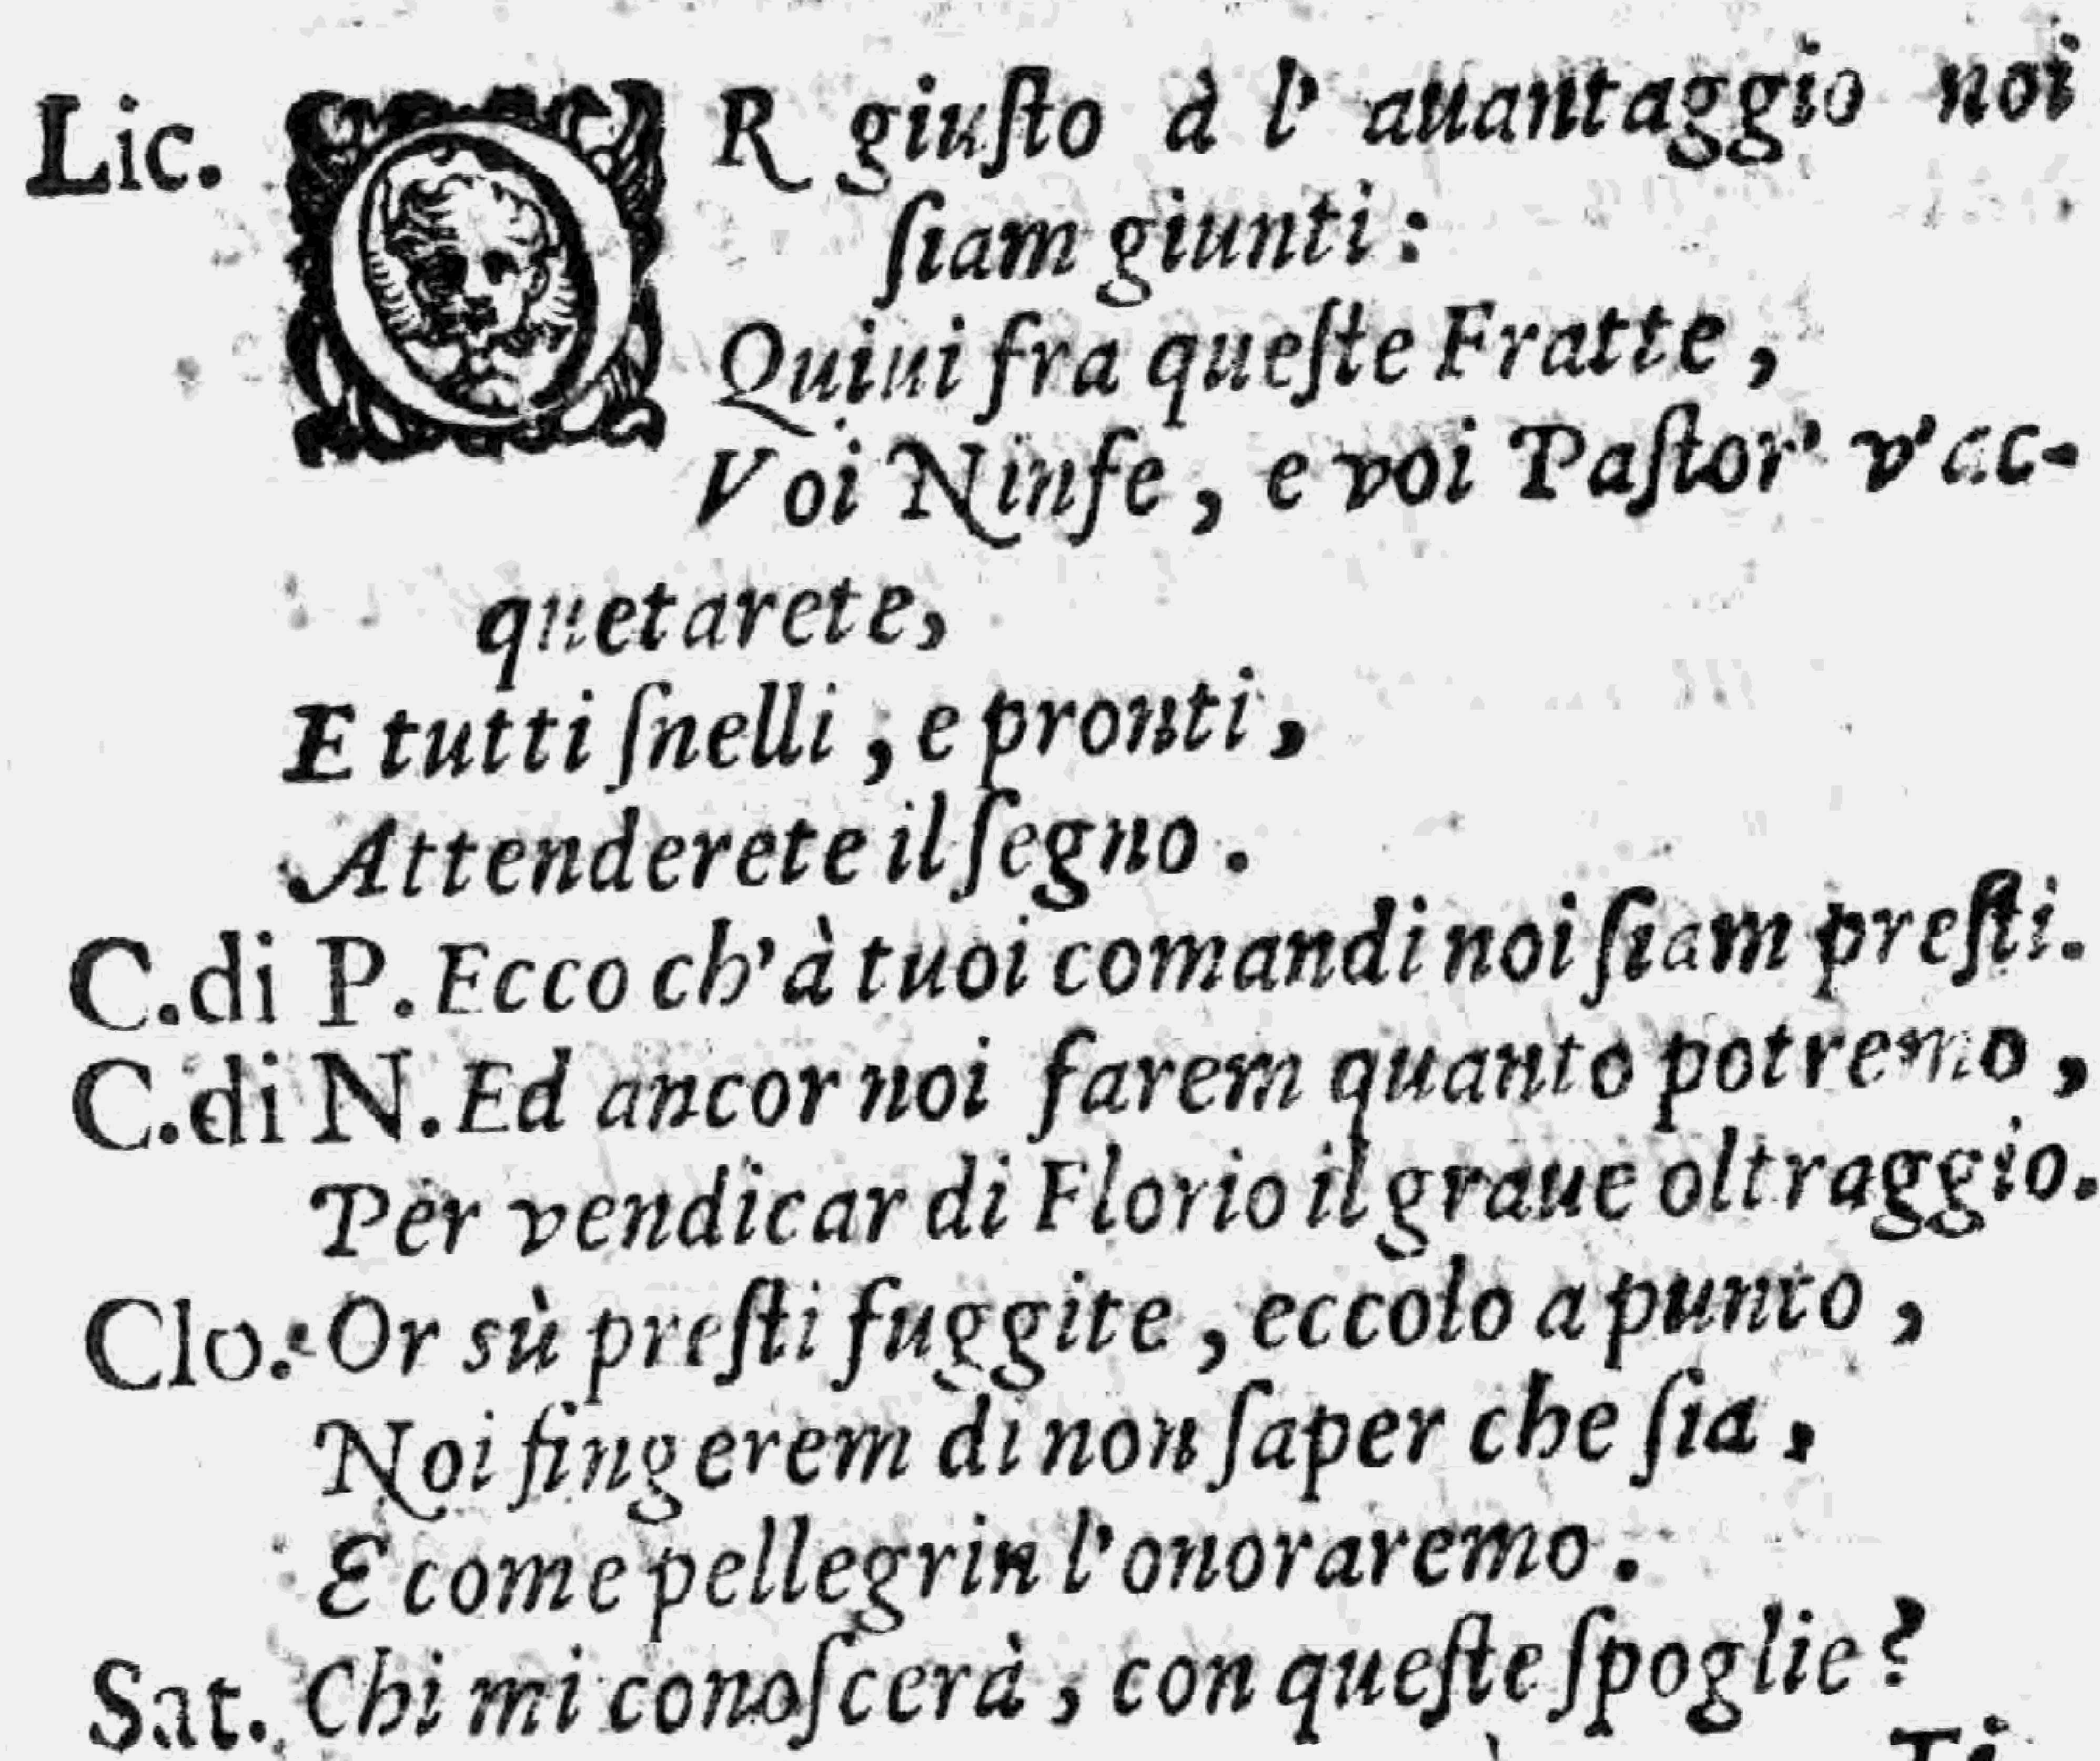 Lic. OR giuſto à l' auantaggio noi
ſiam giunti:
Quiui fra queſte Fratte,
Voi Ninfe, e voi Paſtor' v'ac-
quetarete,
E tutti ſnelli, e pronti,
Attenderete il ſegno.
C.di P. Ecco ch'à tuoi comandi noi ſiam preſti.
C.di N. Ed ancor noi farem quanto potremo,
Per vendicar di Florio il graue oltraggio.
Clo. Or sù preſti fuggite, eccolo a punto,
Noi fingerem di non ſaper che ſia,
E come pellegrin l'onoraremo.
Sat. Chi mi conoſcerà, con queſte ſpoglie?
Ti